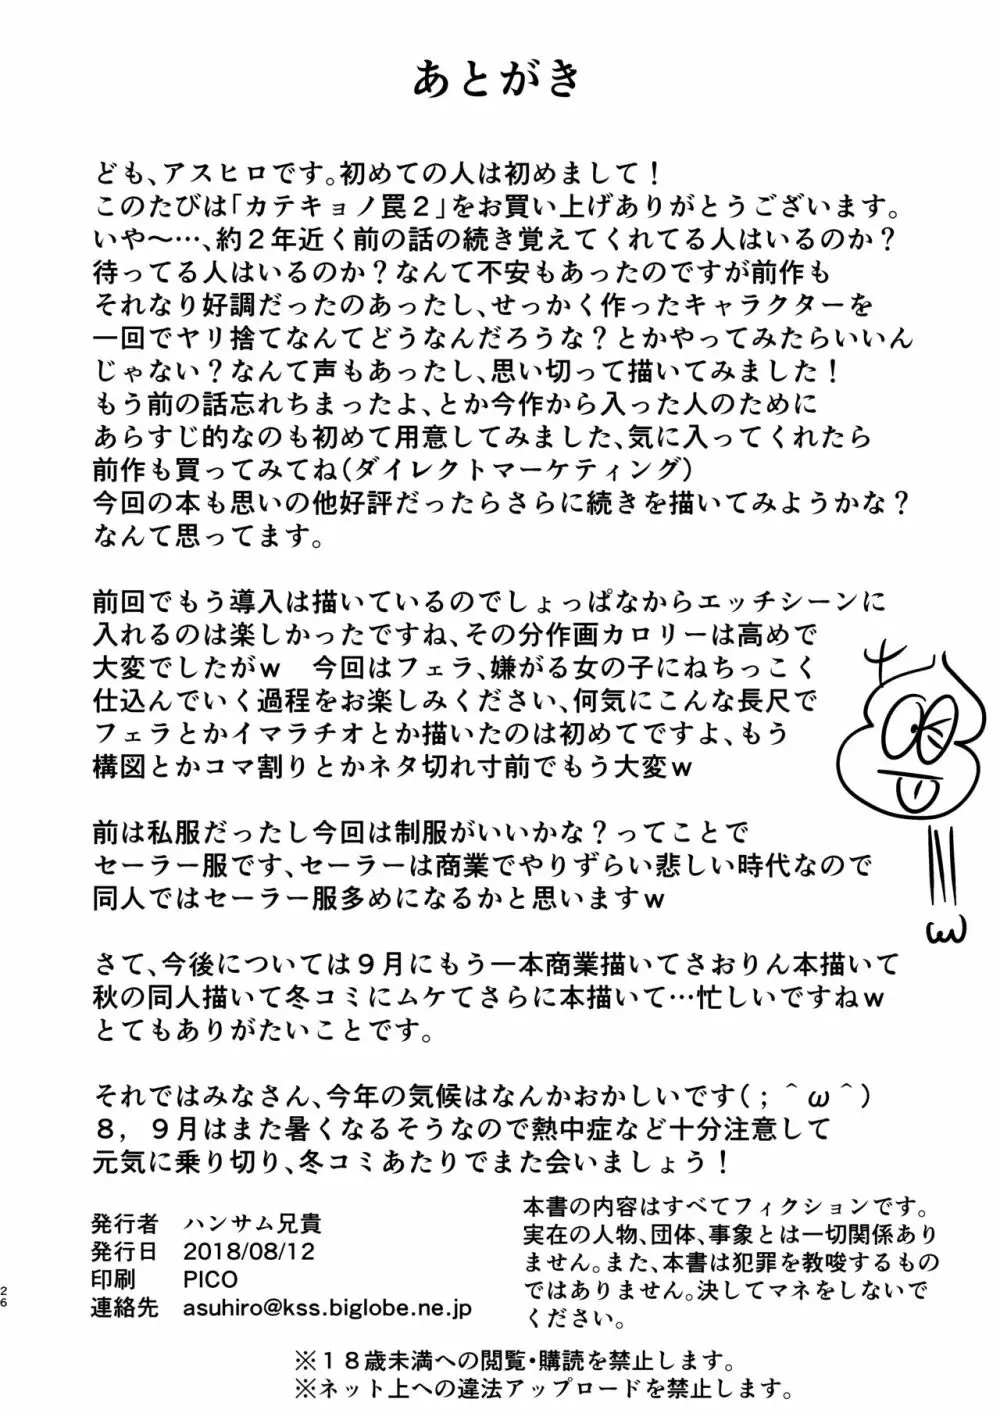 あとがき
ども、アスヒロです。初めての人は初めまして！
このたびは「カテキョノ罠２」をお買い上げありがとうございます。
いや～…、約２年近く前の話の続き覚えてくれてる人はいるのか？
待ってる人はいるのか？なんて不安もあったのですが前作も
それなり好調だったのあったし、せっかく作ったキャラクターを
一回でヤリ捨てなんてどうなんだろうな？とかやってみたらいいん
じゃない？なんて声もあったし、思い切って描いてみました！
もう前の話忘れちまったよ、とか今作から入った人のために
あらすじ的なのも初めて用意してみました、気に入ってくれたら
前作も買ってみてね（ダイレクトマーケティング）
今回の本も思いの他好評だったらさらに続きを描いてみようかな？
なんて思ってます。
前回でもう導入は描いているのでしょっぱなからエッチシーンに
入れるのは楽しかったですね、その分作画カロリーは高めで
大変でしたがｗ　今回はフェラ、嫌がる女の子にねちっこく
仕込んでいく過程をお楽しみください、何気にこんな長尺で
フェラとかイマラチオとか描いたのは初めてですよ、もう
構図とかコマ割りとかネタ切れ寸前でもう大変ｗ
前は私服だったし今回は制服がいいかな？ってことで
セーラー服です、セーラーは商業でやりずらい悲しい時代なので
同人ではセーラー服多めになるかと思いますｗ
さて、今後については９月にもう一本商業描いてさおりん本描いて
秋の同人描いて冬コミにムケてさらに本描いて…忙しいですねｗ
とてもありがたいことです。
それではみなさん、今年の気候はなんかおかしいです（；＾ω＾）
８，９月はまた暑くなるそうなので熱中症など十分注意して
元気に乗り切り、冬コミあたりでまた会いましょう！
発行者　ハンサム兄貴
発行日　2018/08/12
印刷　PICO
連絡先　asuhiro@kss.biglobe.ne.jp
本書の内容はすべてフィクションです。
実在の人物、団体、事象とは一切関係あり
ません。また、本書は犯罪を教唆するもの
ではありません。決してマネをしないで
ください。
※１８歳未満への閲覧・購読を禁止します。
※ネット上への違法アップロードを禁止します。
26